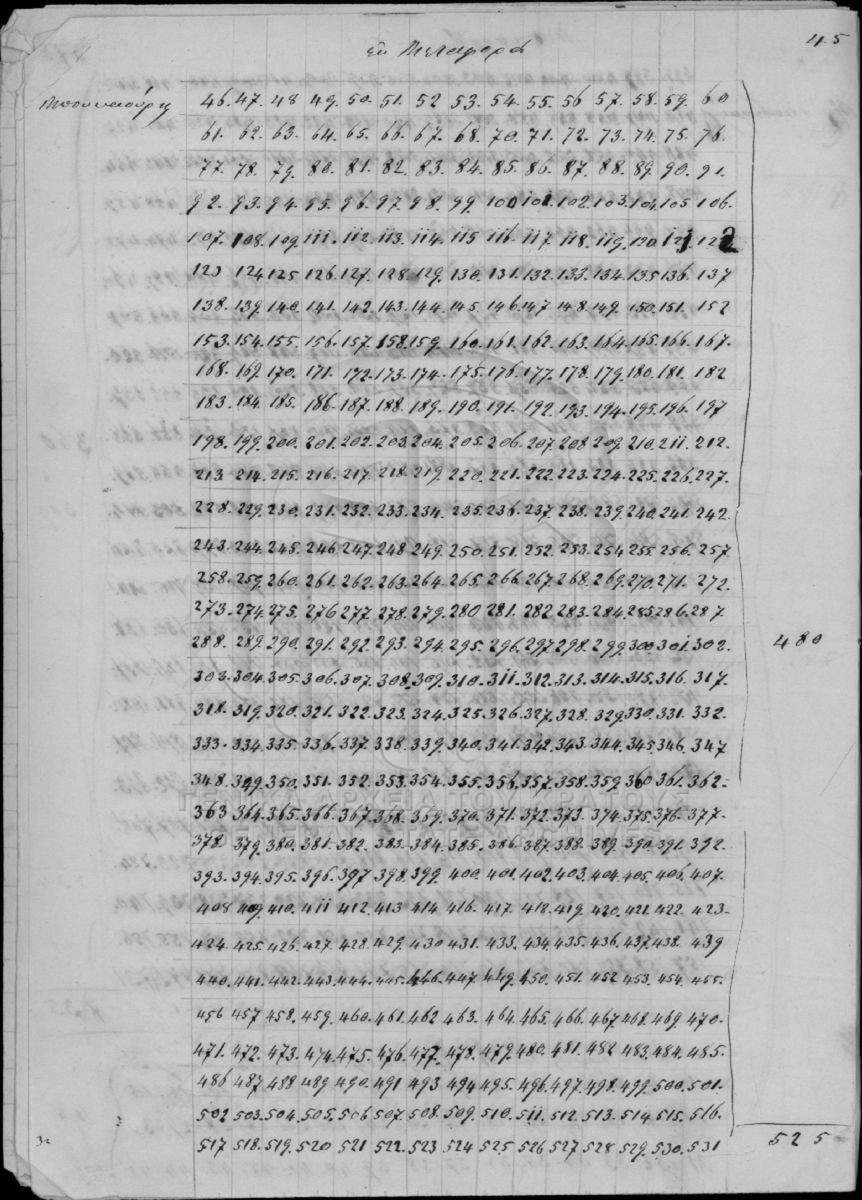 45
Ἐκ Μεταφορᾶς
46. 47. 48 49. 50. 51. 52 53. 54. 55. 56 57. 58. 59. 60
61. 62. 63. 64. 65. 66. 67. 68. 70. 71. 72. 73. 74. 75. 76.
77. 78. 79. 80. 81. 82. 83. 84. 85. 86. 87. 88. 89. 90. 91.
92. 93. 94. 95. 96. 97. 98. 99. 100 101. 102. 103. 104. 105 106.
107. 108. 109. 111. 112. 113. 114. 115 116. 117. 118. 119. 120 121. 122
123 124. 125. 126. 127. 128. 129. 130. 131. 132. 133. 134. 135. 136. 137
138. 139. 140. 141. 142. 143. 144. 145. 146. 147 148. 149. 150. 151. 152
153. 154. 155. 156. 157. 158. 159. 160. 161. 162. 163. 164. 165. 166. 167.
168. 169. 170. 171. 172. 173. 174. 175. 176. 177. 178. 179. 180. 181. 182
183. 184. 185. 186. 187. 188. 189. 190. 191. 192 193. 194. 195. 196. 197
198. 199. 200. 201. 202. 203. 204. 205. 206. 207. 208 209. 210. 211. 212.
213 214. 215. 216. 217. 218 219. 220. 221. 222. 223. 224. 225. 226. 227.
228. 229. 230. 231. 232. 233. 234. 235. 236. 237 238. 239. 240. 241. 242
243. 244. 245. 246. 247. 248 249. 250. 251. 252. 253. 254 255. 256. 257
258. 259. 260. 261. 262. 263. 264. 265. 266. 267. 268. 269. 270. 271. 272.
273. 274. 275. 276 277. 278. 279. 280 281. 282 283. 284. 285 286. 287
288. 289. 290. 291. 292. 293. 294. 295. 296. 297. 298. 299. 300. 301. 302. 480
303. 304. 305. 306. 307. 308. 309. 310. 311. 312. 313. 314. 315. 316. 317.
318. 319. 320. 321. 322. 323. 324. 325. 326. 327. 328. 329. 330. 331. 332.
333. 334. 335. 336. 337 338. 339. 340. 341. 342. 343. 344. 345. 346. 347
348. 349. 350. 351. 352. 353. 354. 355. 356. 357. 358. 359. 360 361. 362.
363 364. 365. 366. 367. 368. 369. 370. 371. 372. 373. 374. 375. 376. 377.
378. 379. 380. 381. 382. 383. 384. 385. 386. 387. 388. 389. 390. 391. 392
393. 394. 395. 396. 397 398. 399. 400. 401. 402. 403. 404. 405. 406. 407.
408 409. 410. 411 412. 413 414 416. 417. 418. 419. 420. 421. 422. 423.
424. 425. 426. 427. 428. 429. 430 431. 433. 434. 435. 436. 437. 438. 439
440. 441. 442. 443. 444. 445. 446. 447 449. 450. 451. 452 453. 454. 455.
456 457 458. 459. 460. 461. 462 463. 464. 465. 466. 467. 468. 469. 470.
471. 472. 473. 474. 475. 476. 477. 478. 479. 480. 481. 482 483. 484. 485.
486 487 488 489 490. 491 493 494 495. 496. 497. 498. 499. 500. 501.
502 503. 504. 505. 506 507. 508. 509. 510. 511. 512. 513. 514 515. 516.
517 518. 519. 520 521 522. 523 524 525 526 527 528 529. 530. 531 525